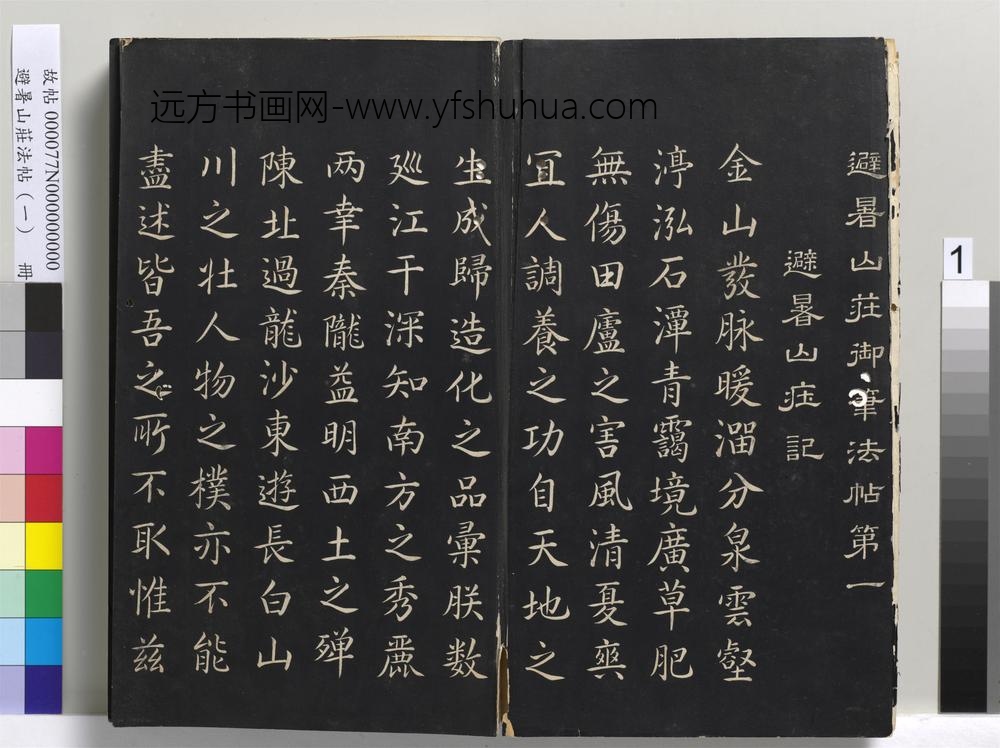 远方书画网-www.yfshuhua.com
避暑山莊御筆法帖第一
避暑山莊記
金山發脉暖溜分泉雲壑
渟泓石潭青靄境廣草肥
無傷田廬之害風清夏爽
宜人調養之功自天地之
生成歸造化之品彙朕数
廵江干深知南方之秀麗
两幸秦隴益明西土之殫
陳北過龍沙東遊長白山
川之壮人物之樸亦不能
盡述皆吾之所不取惟兹
故帖 000077N000000000
避暑山莊法帖(一) 冊
1